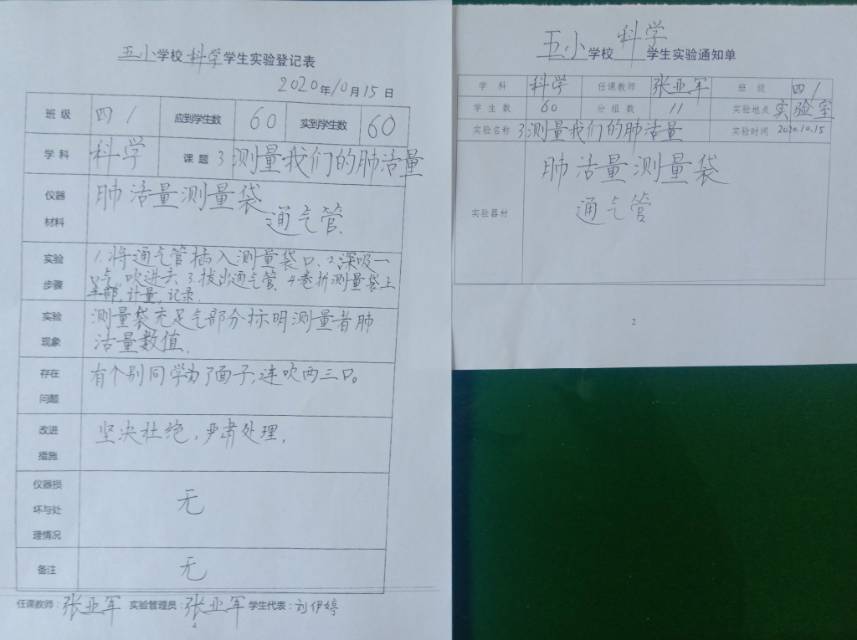 五小学校科学学生实验登记表
2020年10月15日
班级 四1 应到学生数 60 实到学生数 60
学科 科学 课题 3测量我们的肺活量
仪器材料 肺活量测量袋
通气管
实验步骤 1.将通气管插入测量袋口.2.深吸一
气,吹进去 3.拔出通气管 4.卷折测量袋上
半部,计量,记录.
实验现象 测量袋充足气部分标明测量者肺
活量数值.
存在问题 有个别同学为了面子,连吹两三口。
改进措施 坚决杜绝,严肃处理.
仪器损坏与处理情况 无
备注 无
任课教师:张亚军 实验管理员:张亚军 学生代表:刘伊婷
4
五小学校科学学生实验通知单
学科 科学 任课教师 张亚军 班级 四1
学生数 60 分组数 11 实验地点 实验室
实验名称 3测量我们的肺活量 实验时间 2020.10.15
实验器材 肺活量测量袋
通气管
2